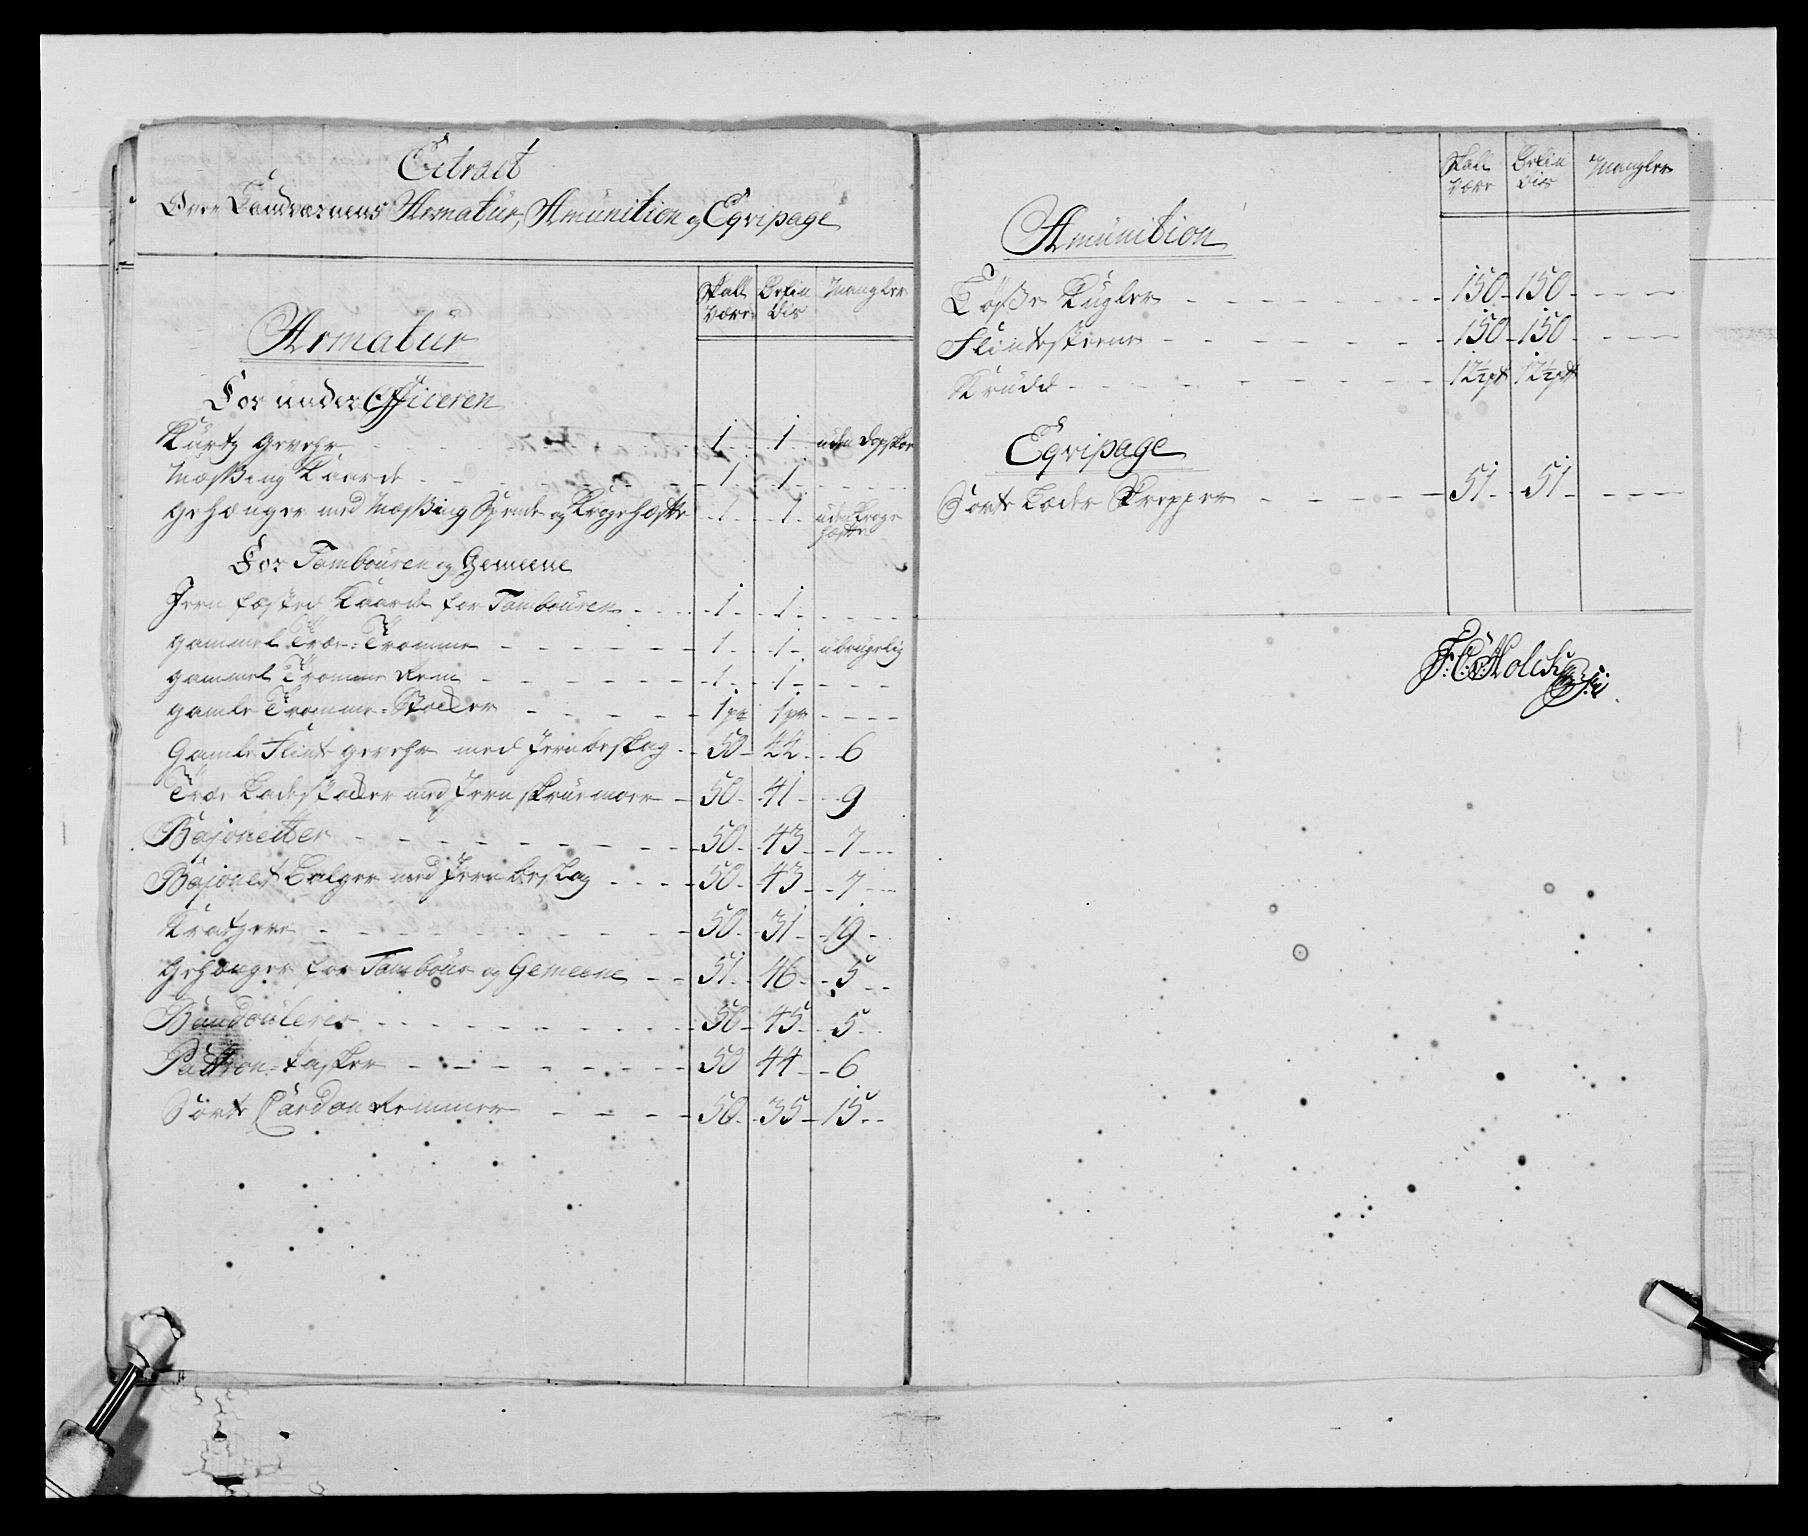 Extract
Over Landværnens Armatur, Amunition og Eqvipage
Skall være Befin dis Mangler
Armatur
For under Officeren
Kurtz gevehr - 1 - 1 uden Dopskoe
Mæssing Kaarde - 1 - 1 - - -
Gehænger med Mæssing Spende og Krogehæfte - 1 - 1 uden kroge hæfte
For Tambouren og Gemeene
Jern fæsted Kaarde for Tambouren - 1 - 1 - - -
gammel Træe-Tromme - 1 - 1 - ubrugelig
gammel Tromme Rem - 1 - 1 - - -
gamle Tromme-Stokker - 1 pr 1 pr - - -
Gamle Flint gevehr med Jernbeslag - 50 - 44 - 6
Træe Ladestokker med Jern skruemoer - 50 - 41 - 9
Bajonetter - 50 - 43 - 7 - -
Bajonet Balger med Jern beslag - 50 - 43 - 7 - -
Kratzere - 50 - 31 - 19 -
Gehænger for Tambour og Gemeene - 51 - 46 - 5 - -
Bandouleres - 50 - 45 - 5 - -
Pattron-tasker - 50 44 - 6
Sorte Cardon Remmer - 50 - 35 - 15 - -
Skall være Befin dis Mangler
Amunition
Løsse Kugler - 150 - 150 - - -
Flinteskene - 150 - 150 - - -
Krudt - 12½ pd 12½ pd
Eqvipage
Sorte Læder Skrepper - 51 - 51 - - -
F: C: v: Holck